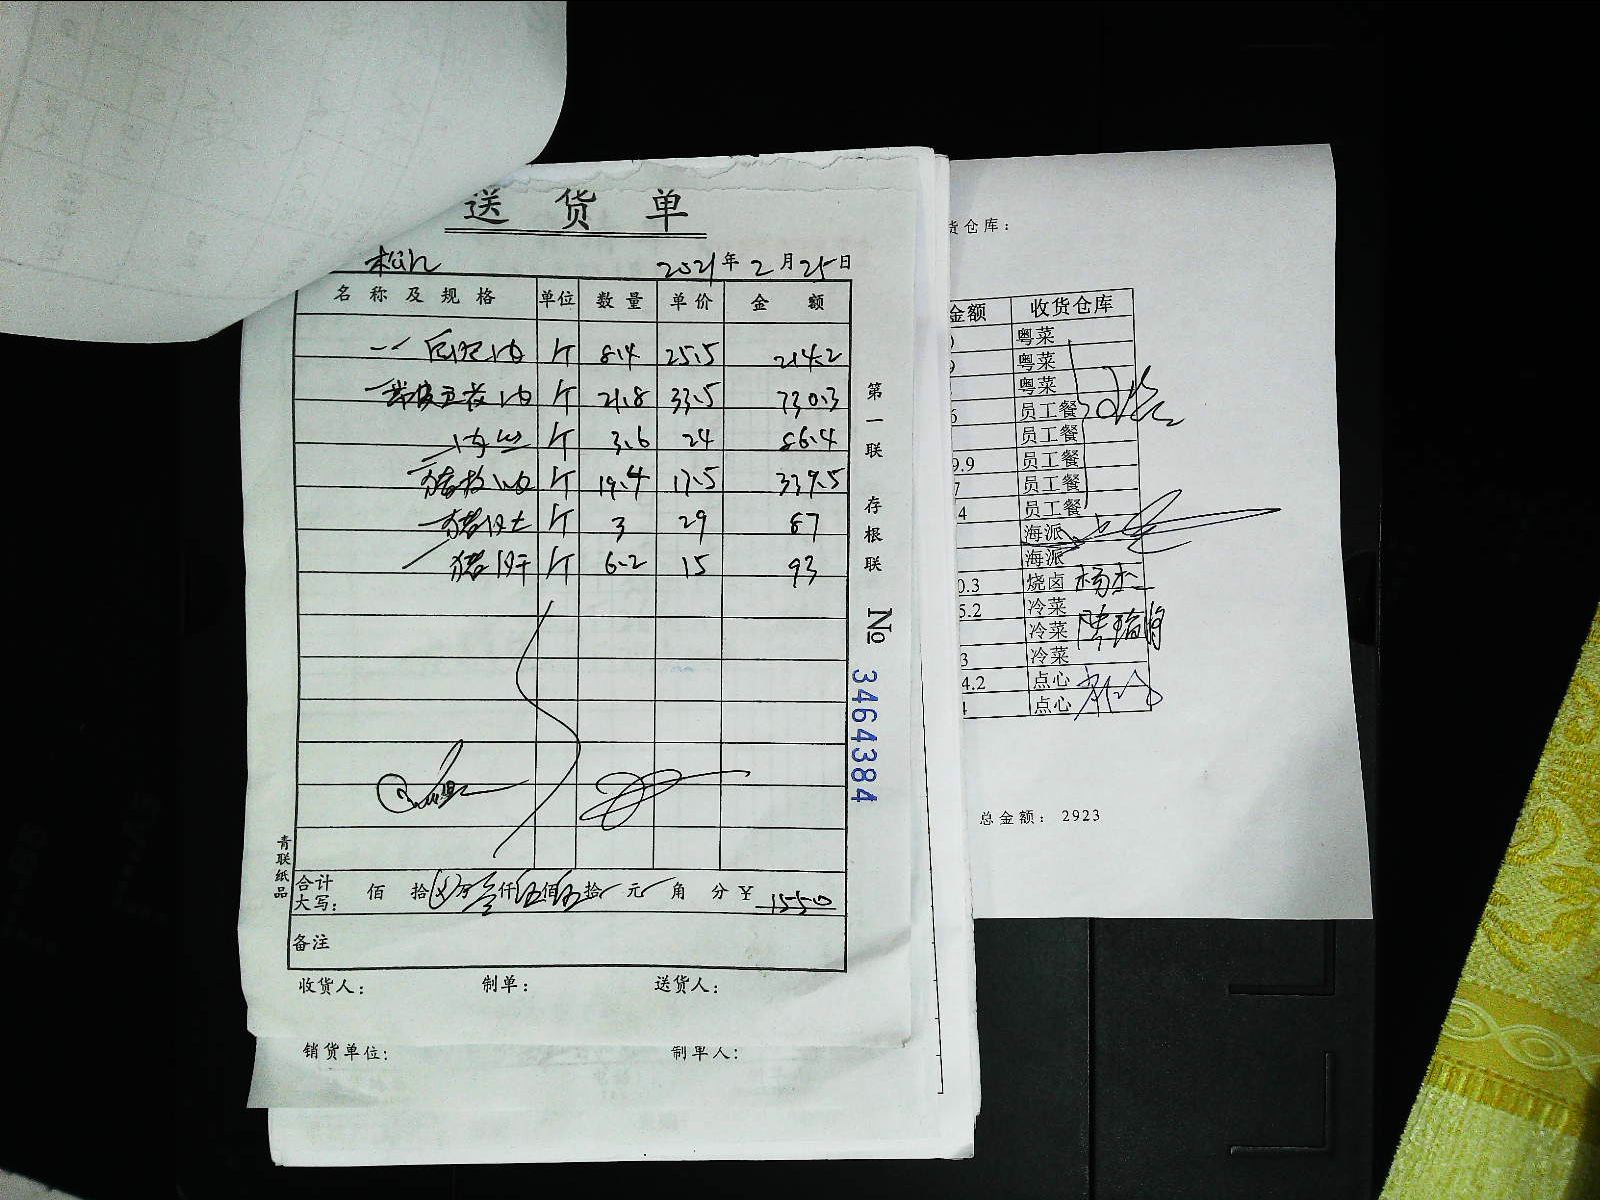 送货单
2021年2月25日
名称及规格 单位 数量 单价 金额
斤 8.4 25.5 214.2
带皮五花肉 斤 21.8 33.5 730.3
肉丝 斤 3.6 24 86.4
斤 19.4 17.5 339.5
猪肚 斤 3 29 87
猪肝 斤 6.2 15 93
合计大写: 佰 拾 万 仟 伍佰 伍拾 元 角 分 ¥ 1550
备注
收货人: 制单: 送货人:
第一联 存根联
No 3464384
青联纸品
销货单位: 制单人:
货仓库:
金额 收货仓库
粤菜
9 粤菜
粤菜
6 员工餐
员工餐
9.9 员工餐
7 员工餐
4 员工餐
海派
海派
0.3 烧卤
5.2 冷菜
冷菜
3 冷菜
4.2 点心
点心
总金额: 2923